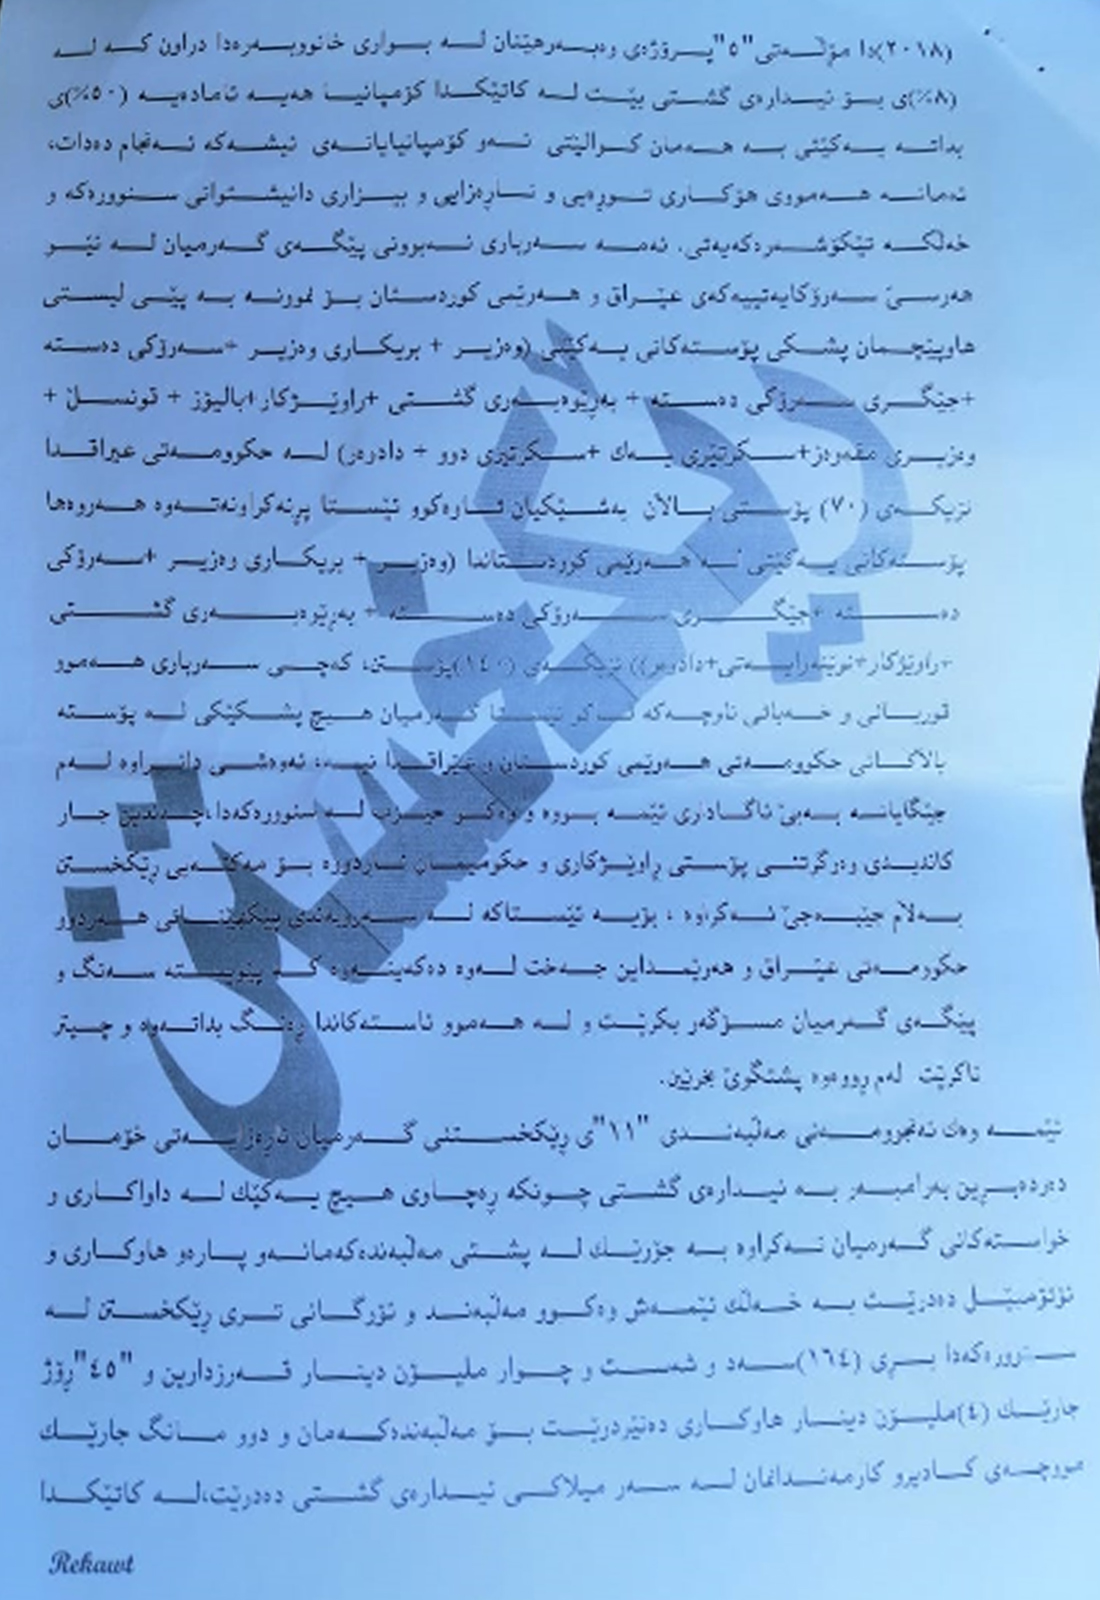 (٢٠١٨)دا مۆڵەتی"٥"پرۆژەی وەبەرهێنان لە بواری خانووبەرەدا دراون کە لە
(٨٪)ی بۆ ئیدارەی گشتی بێت لە کاتێکدا کۆمپانیا هەیە ئامادەیە (٥٠٪)ی
بداتە یەکێتی بە هەمان کوالێتی ئەو کۆمپانیایانەی ئیشەکە ئەنجام دەدات،
ئەمانە هەمووی هۆکاری تورەیی و ناڕەزایی و بێزاری دانیشتوانی سنوورەکە و
خەڵکە تێکۆشەرەکەیەتی. ئەمە سەرباری نەبوونی پێگەی گەرمیان لە نێو
هەرسێ سەرۆکایەتییەکەی عێراق و هەرێمی کوردستان بۆ نموونە بە پێی لیستی
هاوپێچمان پشکی پۆستەکانی یەکێتی (وەزیر + بریکاری وەزیر +سەرۆکی دەستە
+جێگری سەرۆکی دەستە + بەڕێوەبەری گشتی +راوێژکار+بالیۆز + قونسڵ +
وەزیری مفەوەز+سکرتێری یەك +سکرتێری دوو + دادوەر) لە حکوومەتی عیراقدا
نزیکەی (٧٠) پۆستی باڵان بەشێکیان تارەکوو ئێستا پڕنەکراونەتەوە هەروەها
پۆستەکانی یەکێتی لە هەرێمی کوردستاندا (وەزیر + بریکاری وەزیر +سەرۆکی
دەستە +جێگری سەرۆکی دەستە + بەڕێوەبەری گشتی
+راوێژکار+نوێنەرایەتی+دادوەر)) نزیکەی (١٤٠)پۆستن، کەچی سەرباری هەموو
قوربانی و خەباتی ناوچەکە تاکو ئێستا گەرمیان هیچ پشکێکی لە پۆستە
باڵاکانی حکوومەتی هەرێمی کوردستان و عێراقدا نییە، ئەوەشی دانراوە لەم
جێگایانە بەبێ ئاگاداری ئێمە بووە و وەکو حیزب لە سنوورەکەدا ،چەندین جار
کاندیدی وەرگرتنی پۆستی ڕاوێژکاری و حکومیمان ناردووە بۆ مەکتەبی ڕێکخستن
بەڵام جێبەجێ نەکراوە ، بۆیە ئێستاکە لە سەروبەندی پێکهێنانی هەردوو
حکوومەتی عێراق و هەرێمداین جەخت لەوە دەکەینەوە کە پێویستە سەنگ و
پێگەی گەرمیان مسۆگەر بکرێت و لە هەموو ئاستەکاندا ڕەنگ بداتەوە و چیتر
ناکرێت لەم ڕووەوە پشتگوێ بخرێین.
ئێمە وەك ئەنجوومەنی مەڵبەندی "١١"ی ڕێکخستنی گەرمیان ناڕەزایەتی خۆمان
دەردەبڕین بەرامبەر بە ئیدارەی گشتی چونکە ڕەچاوی هیچ یەکێك لە داواکاری و
خواستەکانی گەرمیان نەکراوە بە جۆرێك لە پشتی مەڵبەندەکەمانەو پارەو هاوکاری و
ئۆتۆمبێل دەدرێت بە خەڵك ئێمەش وەکوو مەڵبەند و ئۆرگانی تری ڕێکخستن لە
سنوورەکەدا بڕی (١٦٤)سەد و شەست و چوار ملیۆن دینار قەرزدارین و "٤٥"ڕۆژ
جارێك (٤)ملیۆن دینار هاوکاری دەنێردرێت بۆ مەڵبەندەکەمان و دوو مانگ جارێك
مووچەی کادیرو کارمەندانمان لە سەر میلاکی ئیدارەی گشتی دەدرێت،لە کاتێکدا
Rekawt